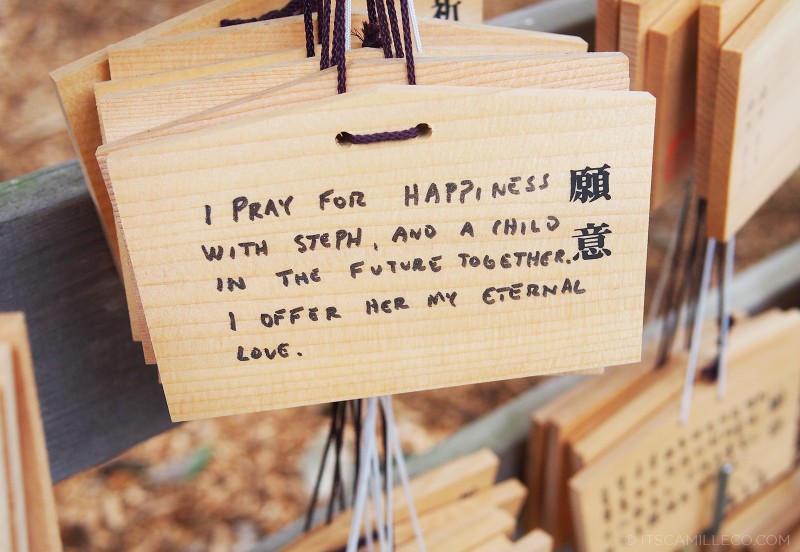 祈
願意
I PRAY FOR HAPPINESS
WITH STEPH, AND A CHILD
IN THE FUTURE TOGETHER.
I OFFER HER MY ETERNAL
LOVE.
© ITSCAMILLECO.COM